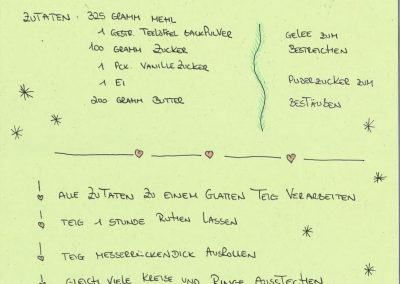 ZUTATEN: 325 GRAMM MEHL
1 GESTR. TEELÖFFEL BACKPULVER
100 GRAMM ZUCKER
1 PCK. VANILLEZUCKER
1 EI
200 GRAMM BUTTER
GELEE ZUM
BESTREICHEN
PUDERZUCKER ZUM
BESTÄUBEN
! ALLE ZUTATEN ZU EINEM GLATTEN TEIG VERARBEITEN
! TEIG 1 STUNDE RUHEN LASSEN
! TEIG MESSERRÜCKENDICK AUSROLLEN
! GLEICH VIELE KREISE UND RINGE AUSSTECHEN